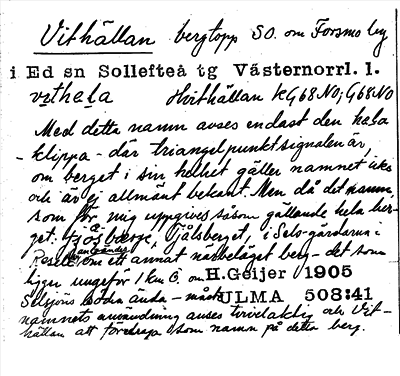 Vithällan bergtopp SO. om Forsmo by
i Ed sn Sollefteå tg Västernorrl. l.
vıthala Hvithällan kG68NO; G68NO
Med detta namn avses endast den hala
klippa - där triangelpunktsignalen är,
om berget i sin helhet gäller namnet icke
och är ej allmänt bekant. Men då det namn
som för mig uppgives såsom gällande hela ber-
get: Fjålsberget, i Selsgårdarna i
Resele användes om ett annat närbeläget berg - det som
ligger ungefär 1 km O. om H. Geijer 1905
Selsjöns södra ända - ULMA 508:41
namnets användning anses tvivelaktig och Vit-
hällan att föredraga som namn på detta berg.